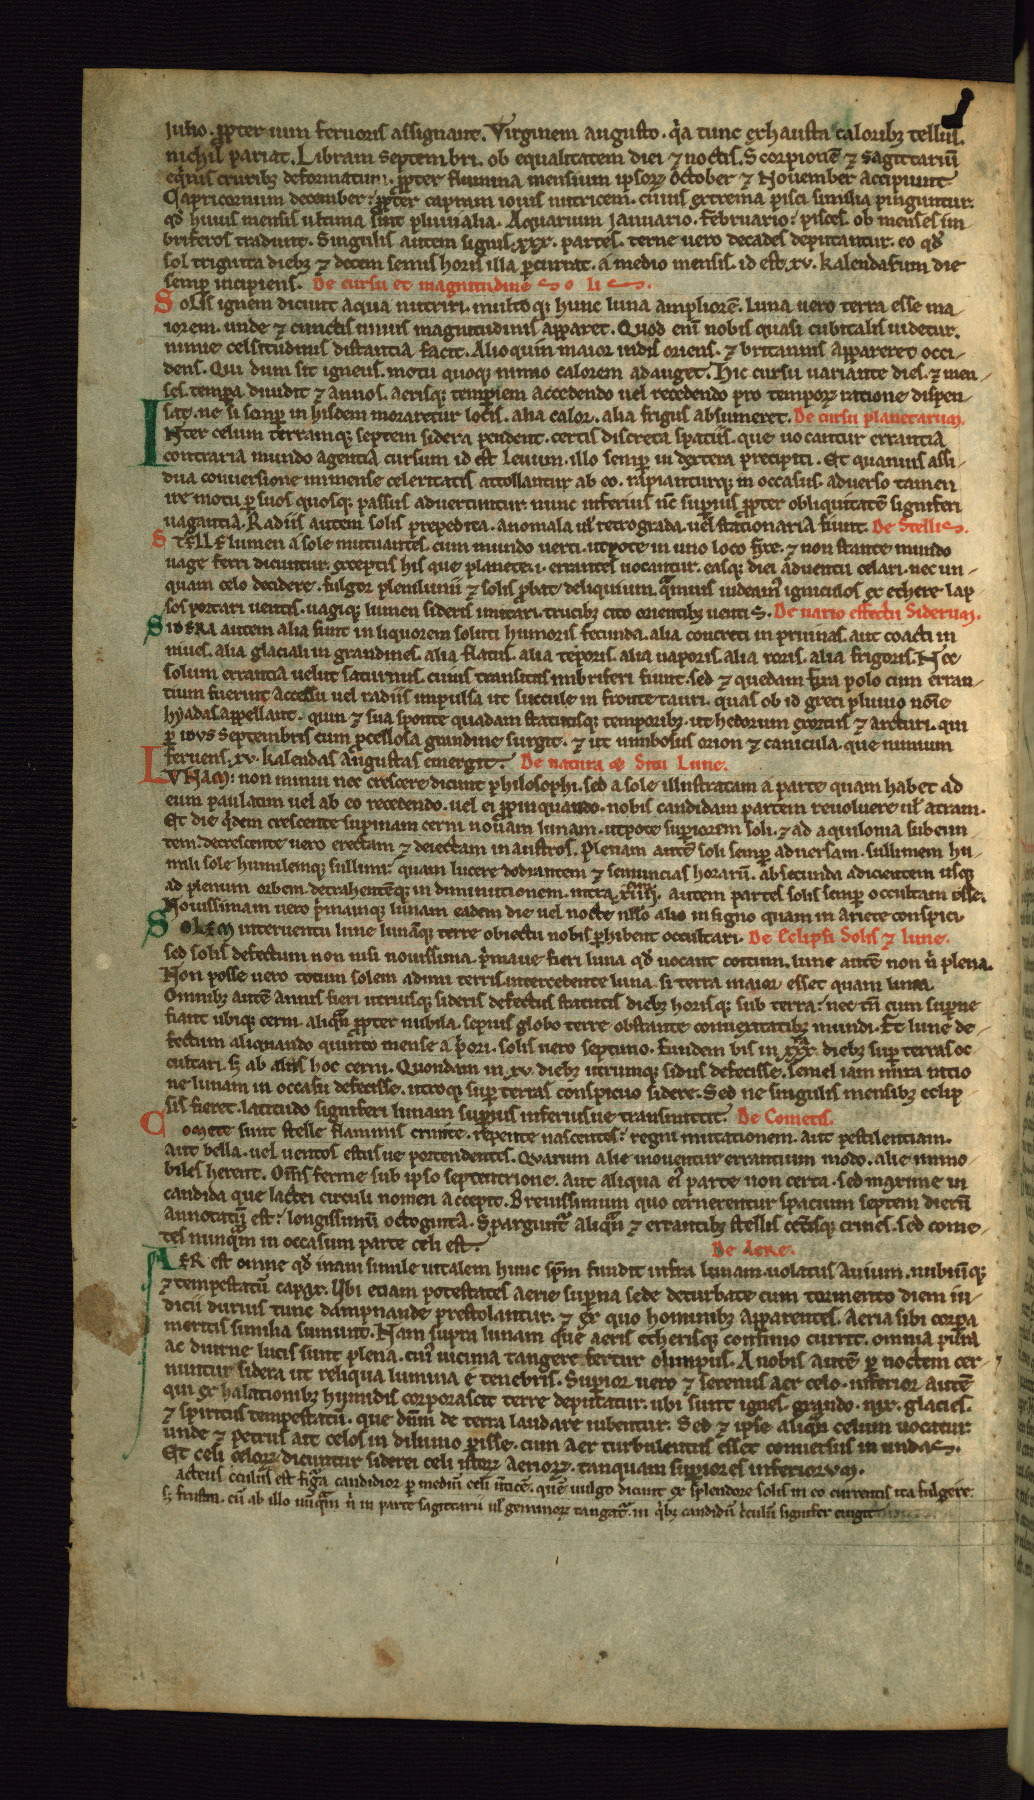 Junio. ꝓpter nim feruoris assignant. Virginem augusto. q̇a tunc exhausta caloribꝫ tellus.
nichil pariat. Libram septembri. ob equalitatem diei ⁊ noctis. Scorpionē ⁊ Sagittariū
equinis cruribꝫ deformatum. ꝓpter flumina mensium ipsoꝝ october ⁊ Nouember accipiunt
Capricornum december. ꝓpter capram iouis nutricem. cuius extrema pisci similia pinguntur.
qđ huius mensis ultima sint pluuialia. Aquarium ianuario. februario. pisces. ob menses im
briferos tradunt. Singulis autem signis .xxx. partes. terne uero decades deputantur. eo qđ
sol triginta diebꝫ ⁊ decem semis horis illa ꝑcurrat. a medio mensis. id est .xv. kalendarum die
semꝑ incipiens. De cursu et magnitudine Solis.
Solis ignem dicunt aqua nutriri. multoqꝫ hunc luna ampliorē. luna uero terra esse ma
iorem. unde ⁊ cunctis unius magnitudinis apparet. Quod eni nobis quasi cubitalis uidetur.
nimie celsitudinis distantia facit. Alioquin maior indis oriens. ⁊ britannis appareret occi-
dens. Qui dum sit igneus. motu quoqꝫ nimio calorem adauget. Hic cursu uariante dies. ⁊ men-
ses. tempa diuidit ⁊ annos. aerisqꝫ temperiem accedendo uel recedendo pro temporꝝ ratione dispen-
sat. ne si semꝑ in hisdem moraretur locis. alia calor. alia frigus absumeret. De cursu planetarum.
Inter celum terramqꝫ septem sidera pendent. certis discreta spatiis. que uocantur errantia
contraria mundo agentia cursum id est leuum. illo semꝑ in dextera precipiti. Et quamuis assi-
dua conuersione immense celeritatis attollantur ab eo. rapianturqꝫ in occasus. aduerso tamen
ire motu ꝑ suos quosqꝫ passus aduertuntur. nunc inferius nc̄ supius ꝓpter obliquitatē signiferi
uagantia. Radiis autem solis prepedita. anomala ul retrograda. uel stationaria fiunt. De Stellis.
Stelle lumen a sole mutuantes. cum mundo uerti. utpote in uno loco fixe. ⁊ non stante mundo
uage ferri dicuntur. exceptis his que planete. i. errantes uocantur. easqꝫ diei aduentu celari. nec un-
quam celo decidere. fulgor plenilunii ⁊ solis ꝓbat deliquium. q̄muis uideam igniculos ex ethere lap-
sos portari uentis. uagiqꝫ lumen sideris imitari. trucibꝫ cito orientibꝫ uentis. De uario effectu Siderum.
Sidera autem alia sunt in liquorem soluti humoris fecunda. alia concreti in pruinas. aut coacti in
niues. alia glaciali in grandines. alia flatus. alia teporis. alia uaporis. alia roris. alia frigoris. Nec
solum errantia uelut saturnus. cuius transitus imbriferi fiunt. sed ⁊ quedam fixa polo cum erran-
tium fuerint accessu uel radiis impulsa ut succule in fronte tauri. quas ob id greci pluuio noīe
hyadas appellant. quin ⁊ sua sponte quadam statutisqꝫ temporibꝫ. ut hedorum exortus ⁊ arcturi. qui
ꝑ idus septembris cum ꝓcellosa grandine surgit. ⁊ ut nimbosus orion ⁊ canicula. que nimium
feruens .xv. kalendas augustas emergit. De natura ⁊ Situ Lune.
Lunam: non minui nec crescere dicunt philosophi. sed a sole illustratam a parte quam habet ad
eum paulatim uel ab eo recedendo. uel ei ꝓpinquando. nobis candidam partem reuoluere ul atram.
Et die qdem crescente supinam cerni nouam lunam. utpote supiorem soli. ⁊ ad aquilonia subeun-
tem. decrescente uero erectam ⁊ deiectam in austros. Plenam autē soli semꝑ aduersam. sullimem hu-
mili sole humilemqꝫ sullimi. quam lucere dodrantem ⁊ semuncias horarū. ab secunda adicientem usqꝫ
ad plenum orbem. detrahentēqꝫ in diminutionem. intra .xiiii. autem partes solis semꝑ occultam esse.
Nouissimam uero pmamqꝫ lunam eadem die uel nocte nullo alio in signo quam in ariete conspici.
Solem interuentu lune lunāqꝫ terre obiectu nobis ꝑhibent occultari. De Eclipsi Solis ⁊ lune.
sed solis defectum non nisi nouissima. pmaue fieri luna qđ uocant coitum. lune autē non ń plena.
Non posse uero totum solem adimi terris intercedente luna. si terra maior esset quam luna.
Omnibꝫ autē Annis fieri utriusqꝫ sideris defectus statutis diebꝫ horisqꝫ sub terra. nec tn̄ cum supne
fiant ubiqꝫ cerni. aliqn̄ ꝓpter nubila. sepius globo terre obstante conuexitatibꝫ mundi. Et lune de-
fectum aliquando quinto mense a pori. solis uero septimo. Eundem bis in .xxx. diebꝫ sup terras oc-
cultari. s; ab aliis hoc cerni. Quondam in .xv. diebꝫ utrumqꝫ sidus defecisse. semel iam mira initio
ne lunam in occasu defecisse. utroqꝫ sup terras conspicuo sidere. Sed ne singulis mensibꝫ eclip-
sis fieret. latitudo signiferi lunam supius inferiusue transmittit. De Cometis.
Comete sunt stelle flammis crinite. repente nascentes. regni mutationem. aut pestilentiam.
aut bella. uel uentos estusue portendentes. Quarum alie mouentur errantium modo. alie immo-
biles herent. Oms ferme sub ipso septentrione. aut aliqua ei parte non certa. sed maxime in
candida que lactei circuli nomen accepit. Breuissimum quo cernerentur spacium septem dierū
annotatū est. longissimū octoginta. Sparguntr aliqn̄ ⁊ errantibꝫ stellis cetisqꝫ crines. sed come-
tes nunqm in occasum parte celi est. De Aere.
Aer est omne qđ inani simile uitalem hunc spm fundit infra lunam. uolatus Auium. nubiūqꝫ
⁊ tempestatū capax. Ubi etiam potestates aerie superna sede deturbate cum tormento diem iu-
dicii durius tunc dampnande prestolantur. ⁊ ex quo hominibꝫ apparentes. Aeria sibi corpa
meritis similia sumunt. Nam supra lunam que aeris etherisqꝫ confinio currit. omnia pura
ac diurne lucis sunt plena. cui uicinia tangere fertur olimpus. A nobis autē ꝑ noctem cer-
nuntur sidera ut reliqua lumina e tenebris. Superior uero ⁊ serenus aer celo. inferior autē
qui ex halationibꝫ humidis corporascit terre deputatur. ubi sunt ignes. grando. nix. glacies.
⁊ spiritus tempestatū. que dnm de terra laudare iubentur. Sed ⁊ ipse aliqn̄ celum uocatur.
unde ⁊ petrus ait celos in diluuio ꝑisse. cum aer turbulentus esset conuersus in undas.
Et celi celoꝝ dicuntur siderei celi istoꝝ aerioꝝ. tanquam supiores inferiorum.
acteus circulus est figa candidior ꝑ mediū celi utice. que uulgo dicunt ex splendore solis in eo currentis ita fulgere.
s; frustra. cū ab illo nūquā ń in parte sagittarii ul geminoꝝ tangat. in qbꝫ candidū circulū signifer cingit